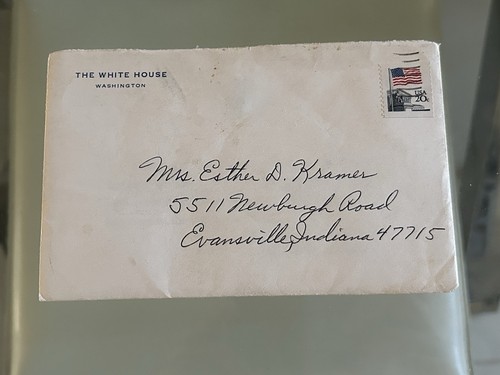 THE WHITE HOUSE
WASHINGTON
USA
20c
Mrs. Esther D. Kramer
5511 Newburgh Road
Evansville, Indiana 47715